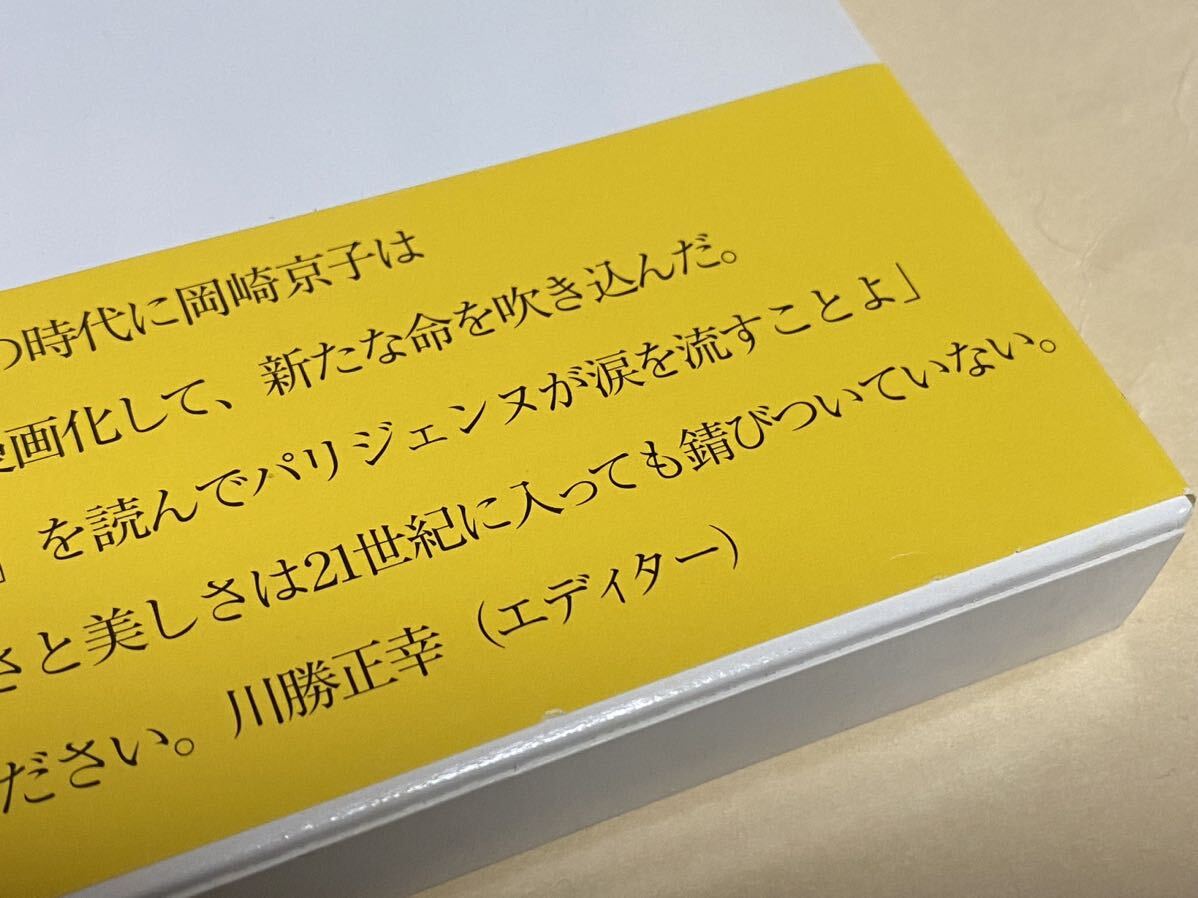 の時代に岡崎京子は
漫画化して、新たな命を吹き込んだ。
」を読んでパリジェンヌが涙を流すことよ」
さと美しさは21世紀に入っても錆びついていない。
ださい。川勝正幸（エディター）